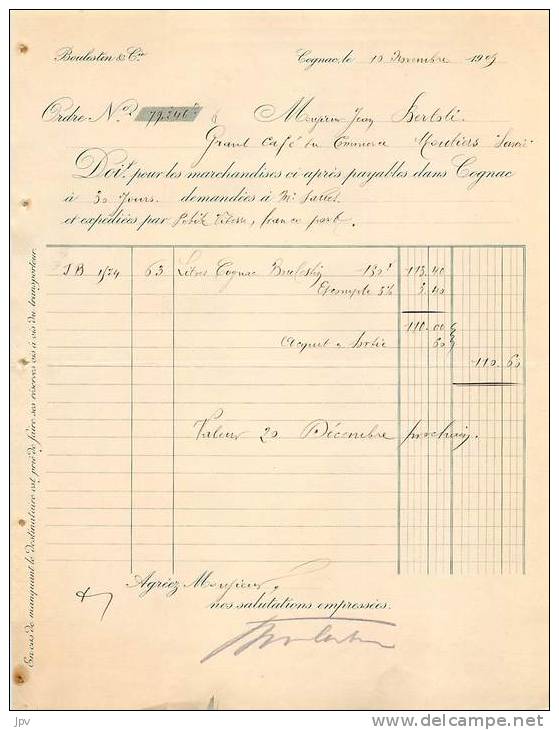 Boulestin & Cie Cognac, le 10 Novembre 1909
Ordre No 79.246
Monsieur Jean Bertoli
Grand Café du Commerce Moutiers
Doit pour les marchandises ci après payables dans Cognac
à 30 Jours. demandées à Mr
et expédiées par Petite Vitesse, franco port.
J B 1/24 63 Litres Cognac Boulestin 180f 113.40
Escompte 3% 3.40
110.00
Acquit à Sortie 60
110.60
Valeur 20 Décembre prochain.
Agréez Monsieur,
nos salutations empressées.
Boulestin
En cas de manquant le destinataire est prié de faire ses réserves vis à vis du transporteur.
jpv
www.delcampe.net